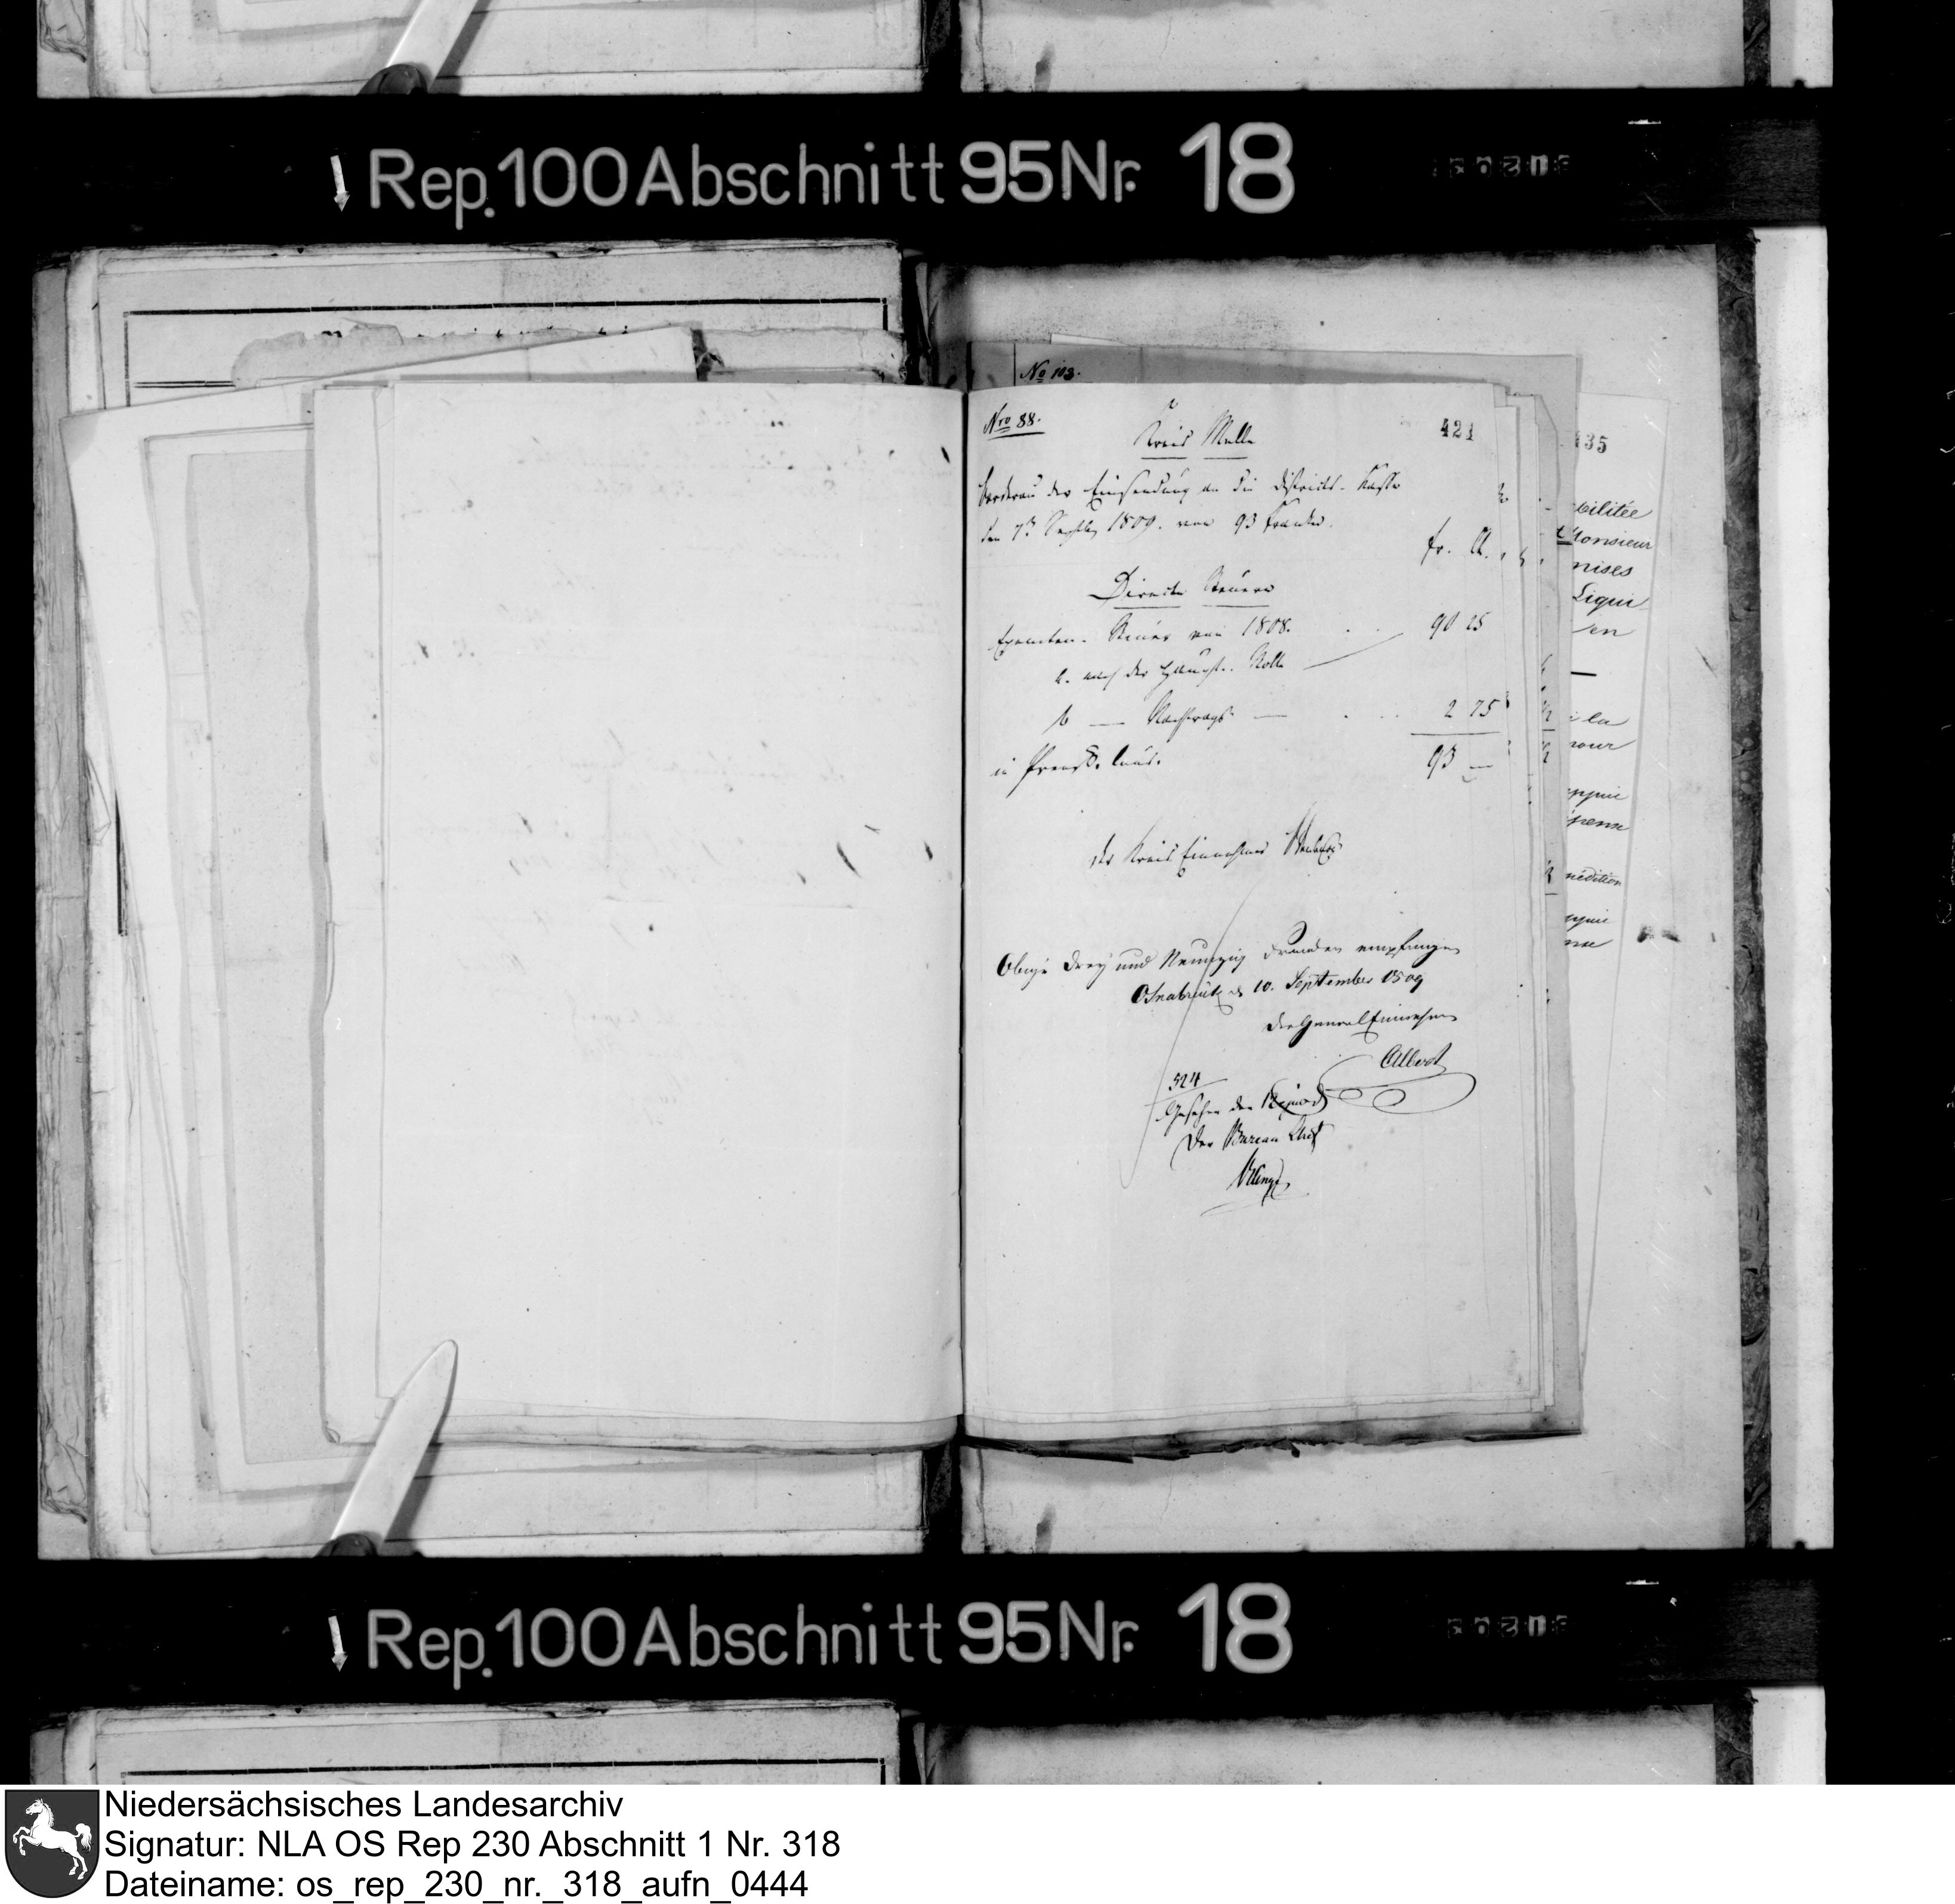 Rep. 100 Abschnitt 95 Nr. 18
No 103.
Nro 88.
421
Kreis Melle
Borderau der Einsendung an die Districts-Kasse
den 7t Septbr 1809. von 93 Franken.
fr. Ct.
Directe Steuern
Exemten-Steuer von 1808.
a. nach der Haupt-Rolle 90 25
b — Nachtrags — 2 75
in Preuß. Cour. 93 —
der Kreis Einnehmer
Obige drey und Neunzig Franken empfangen
Osnabrück d 10. September 1809
Der General Einnehmer
Albert
524
Gesehen
Der Bureau Chef
135
bilitée
Monsieur
mises
Liqui
en
la
pour
Rep. 100 Abschnitt 95 Nr. 18
Niedersächsisches Landesarchiv
Signatur: NLA OS Rep 230 Abschnitt 1 Nr. 318
Dateiname: os_rep_230_nr._318_aufn_0444